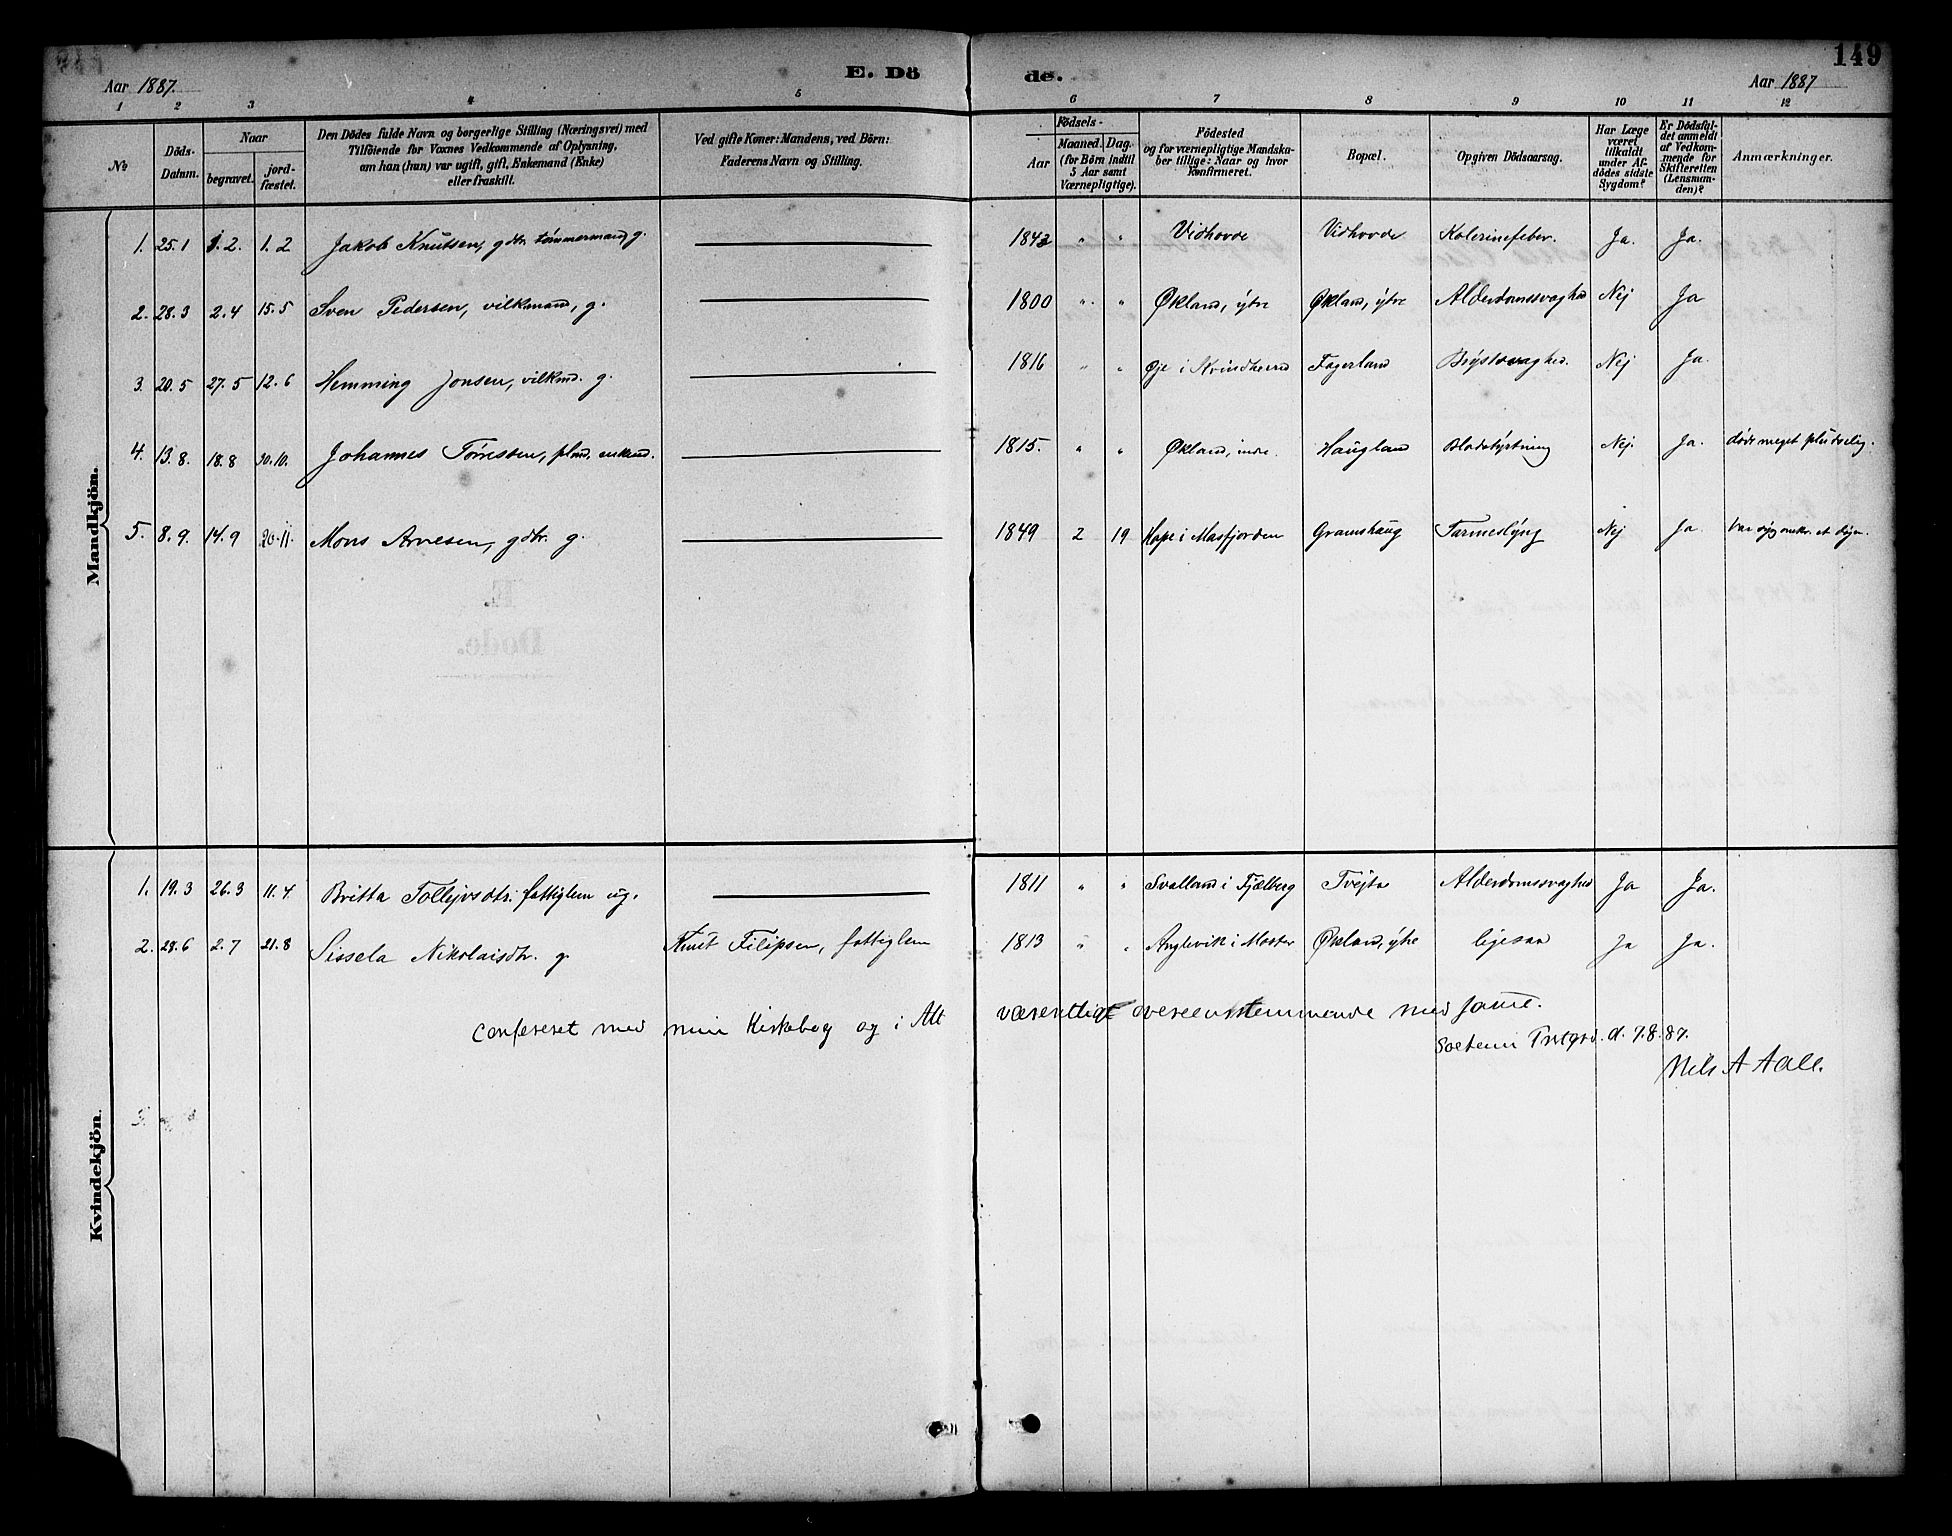 149
E. Döde.
Aar 1887. Aar 1887
1 2 3 4 5 6 7 8 9 10 11 12
No
Döds-Datum.
Naar
begravet.
jord-fæstet.
Den Dödes fulde Navn og borgerlige Stilling (Næringsvei) med
Tilföiende for Voxnes Vedkommende af Oplysning,
om han (hun) var ugift, gift, Enkemand (Enke)
eller fraskilt.
Ved gifte Koner: Mandens, ved Börn:
Faderens Navn og Stilling.
Födsels-
Aar
Maaned. Dag.
(for Börn indtil
5 Aar samt
Værnepligtige).
Födested
og for værnepligtige Mandska-
ber tillige: Naar og hvor
konfirmeret.
Bopæl.
Opgiven Dödsaarsag.
Har Læge
været
tilkaldt
under Af-
dödes sidste
Sygdom?
Er Dödsfal-
det anmeldt
af Vedkom-
mende for
Skifteretten
(Lensman-
den)?
Anmærkninger.
Mandkjön.
1. 25.1 1.2. 1.2 Jakob Knutsen, gdbr. tømmermand g. 1843 " " Vidhovde Vidhovde Kolerinefeber. Ja. Ja.
2. 28.3 2.4 15.5 Sven Pedersen, vilkmand, g. 1800 " " Økland, ytre Økland, ytre Alderdomssvaghed Nej Ja
3. 20.5 27.5 12.6 Hemming Jonsen, vilkmd. g. 1816 " " Øje i Kvindherred Fagerland Brystsvaghed. Nej Ja.
4. 13.8. 18.8 30.10. Johannes Tørresen, plmd. enkmd. 1815. " " Økland, indre. Haugland Blodstyrtning Nej. Ja. døde meget pludselig.
5. 8.9. 14.9 20.11. Mons Arnesen, gdbr. g. 1849 2 19 Hope i Masfjorden Gramshaug Tarmeslyng Nej Ja. Var syg omkr. et døgn.
Kvindekjön.
1. 19.3 26.3 11.4 Britta Tollejvsdtr. fattiglem ug. 1811 " " Svalland i Fjælberg Tvejta Alderdomssvaghed Ja Ja.
2. 28.6 2.7 21.8 Sissela Nikolaisdtr. g. Knut Filipsen, fattiglem 1813 " " Anglevik i Moster Økland, ytre ligesaa Ja Ja.
Confereret med min Kirkebog og i Alt væsentligt overeenstemmende med samme.
d. 7.8.87.
Nils A Aall.